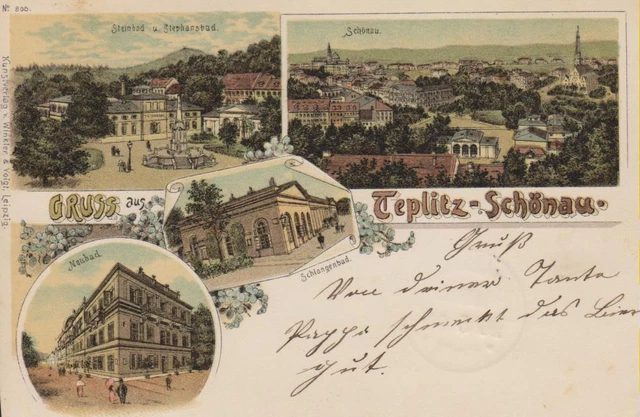 № 600.
Steinbad u. Stephansbad.
Schönau.
Kunstverlag v. Winkler & Voigt, Leipzig.
Gruss aus Teplitz-Schönau.
Schlangenbad.
Neubad.
Gruß
Von deiner Tante
Pappa schmeckt das Bier
gut.